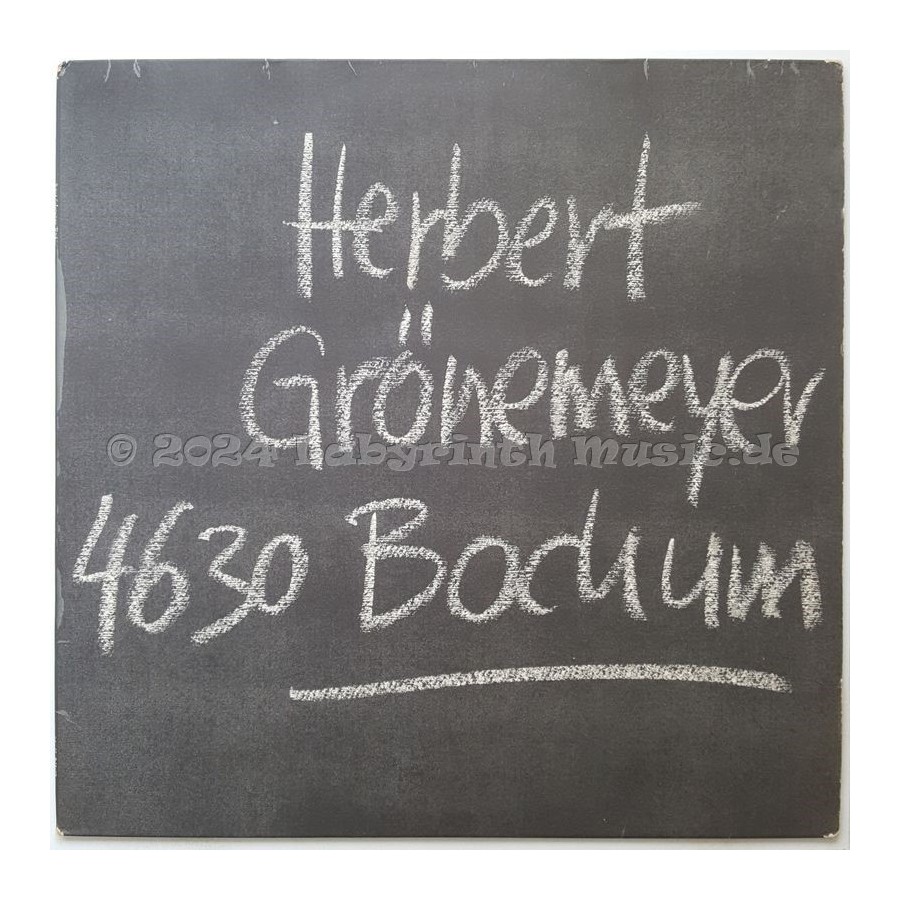 Herbert
Grönemeyer
© 2024 Labyrinth Music.de
4630 Bochum